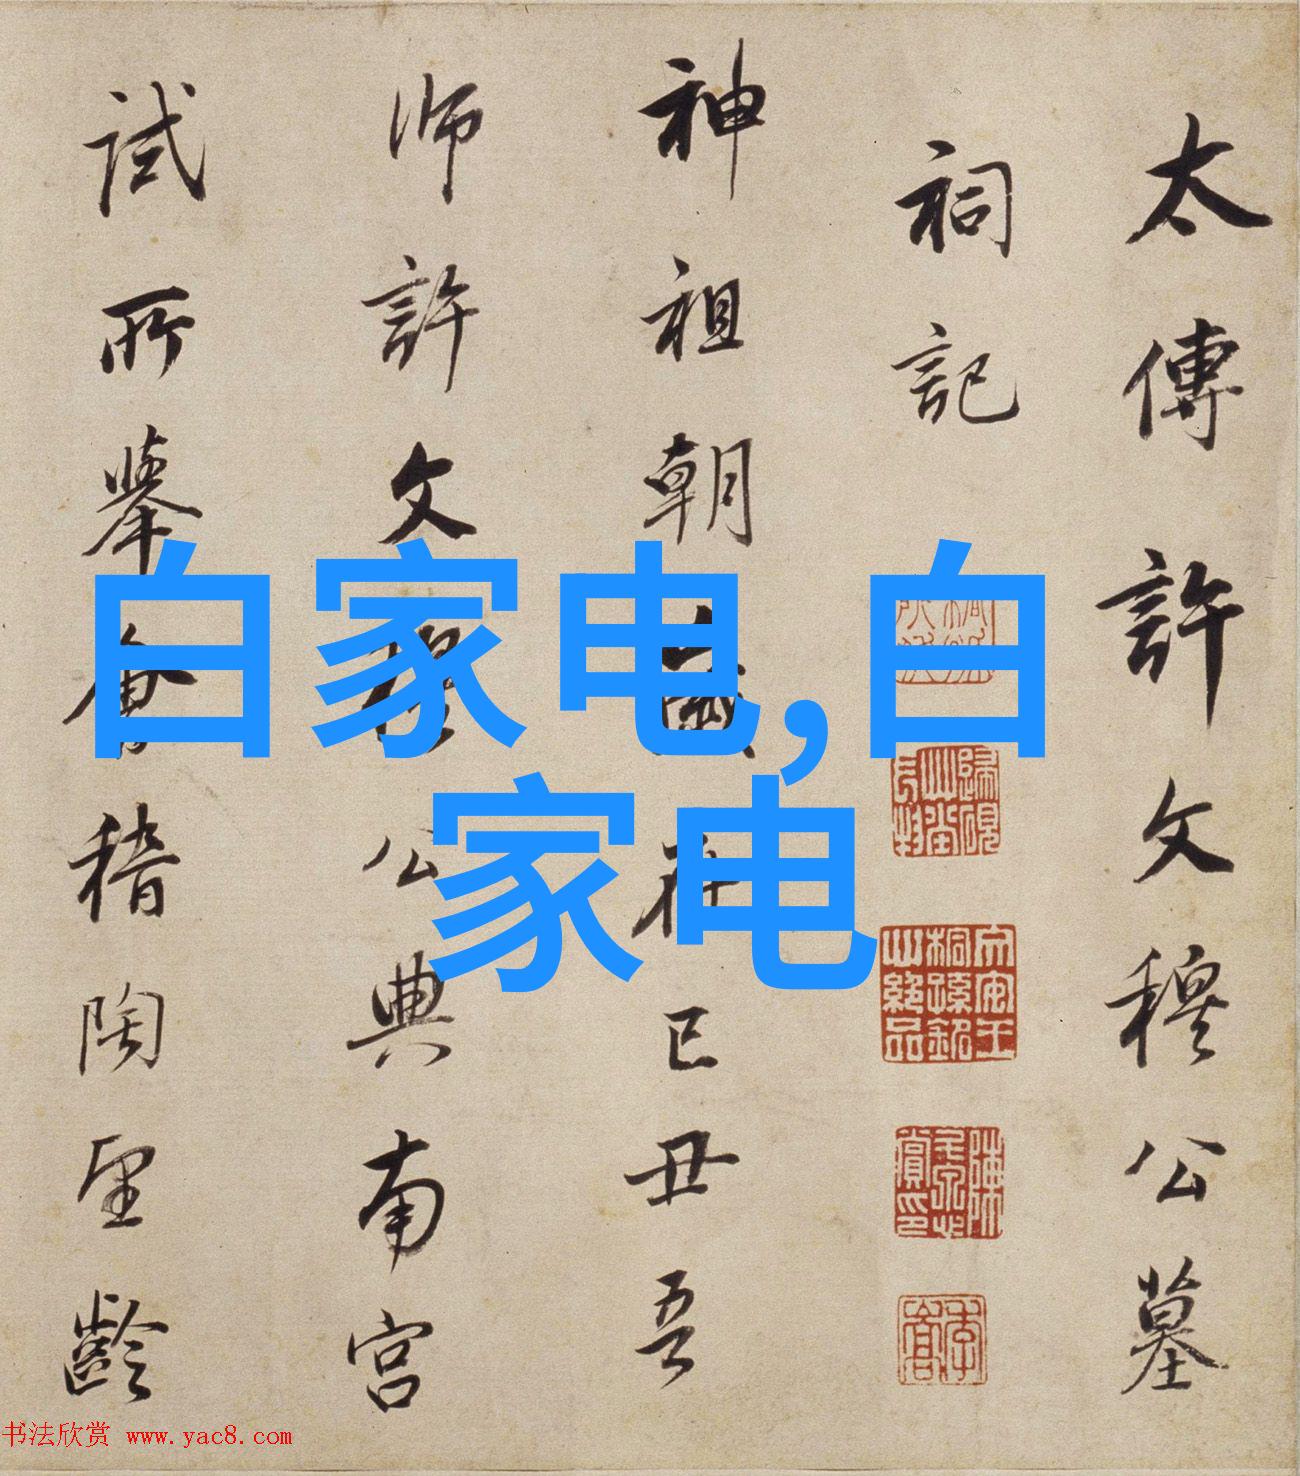 太傳許文穆公墓
祠記
神祖朝歲在已丑吾
师許文穆公典南宫
試所舉會稽陶望齡
白家电,白
家电
书法欣赏 www.yac8.com